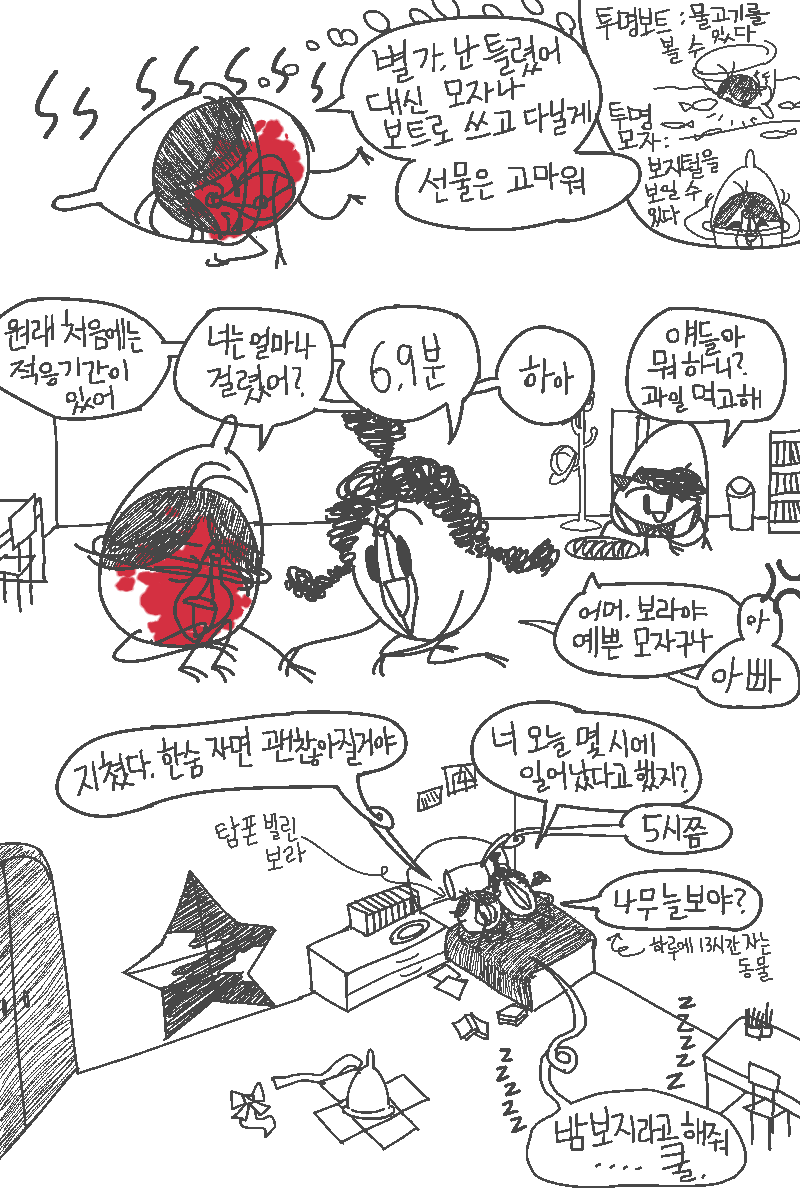 별가. 난 틀렸어
대신 모자나
보트로 쓰고 다닐게
선물은 고마워
투명보트 : 물고기를
볼 수 있다
투명
모자 :
보지털을
보일 수
있다
원래 처음에는
적응기간이
있어
너는 얼마나
걸렸어?
6.9분
하아
얘들아
뭐하니?
과일 먹고해
어머. 보라야
예쁜 모자구나
아
아빠
지쳤다. 한숨 자면 괜찮아질거야
너 오늘 몇 시에
일어났다고 했지?
5시쯤
탐폰 빌린
보라
나무늘보야?
하루에 13시간 자는
동물
z
z
z
z
z
z
z
z
z
z
밤보지라고 해줘
.... 쿨.